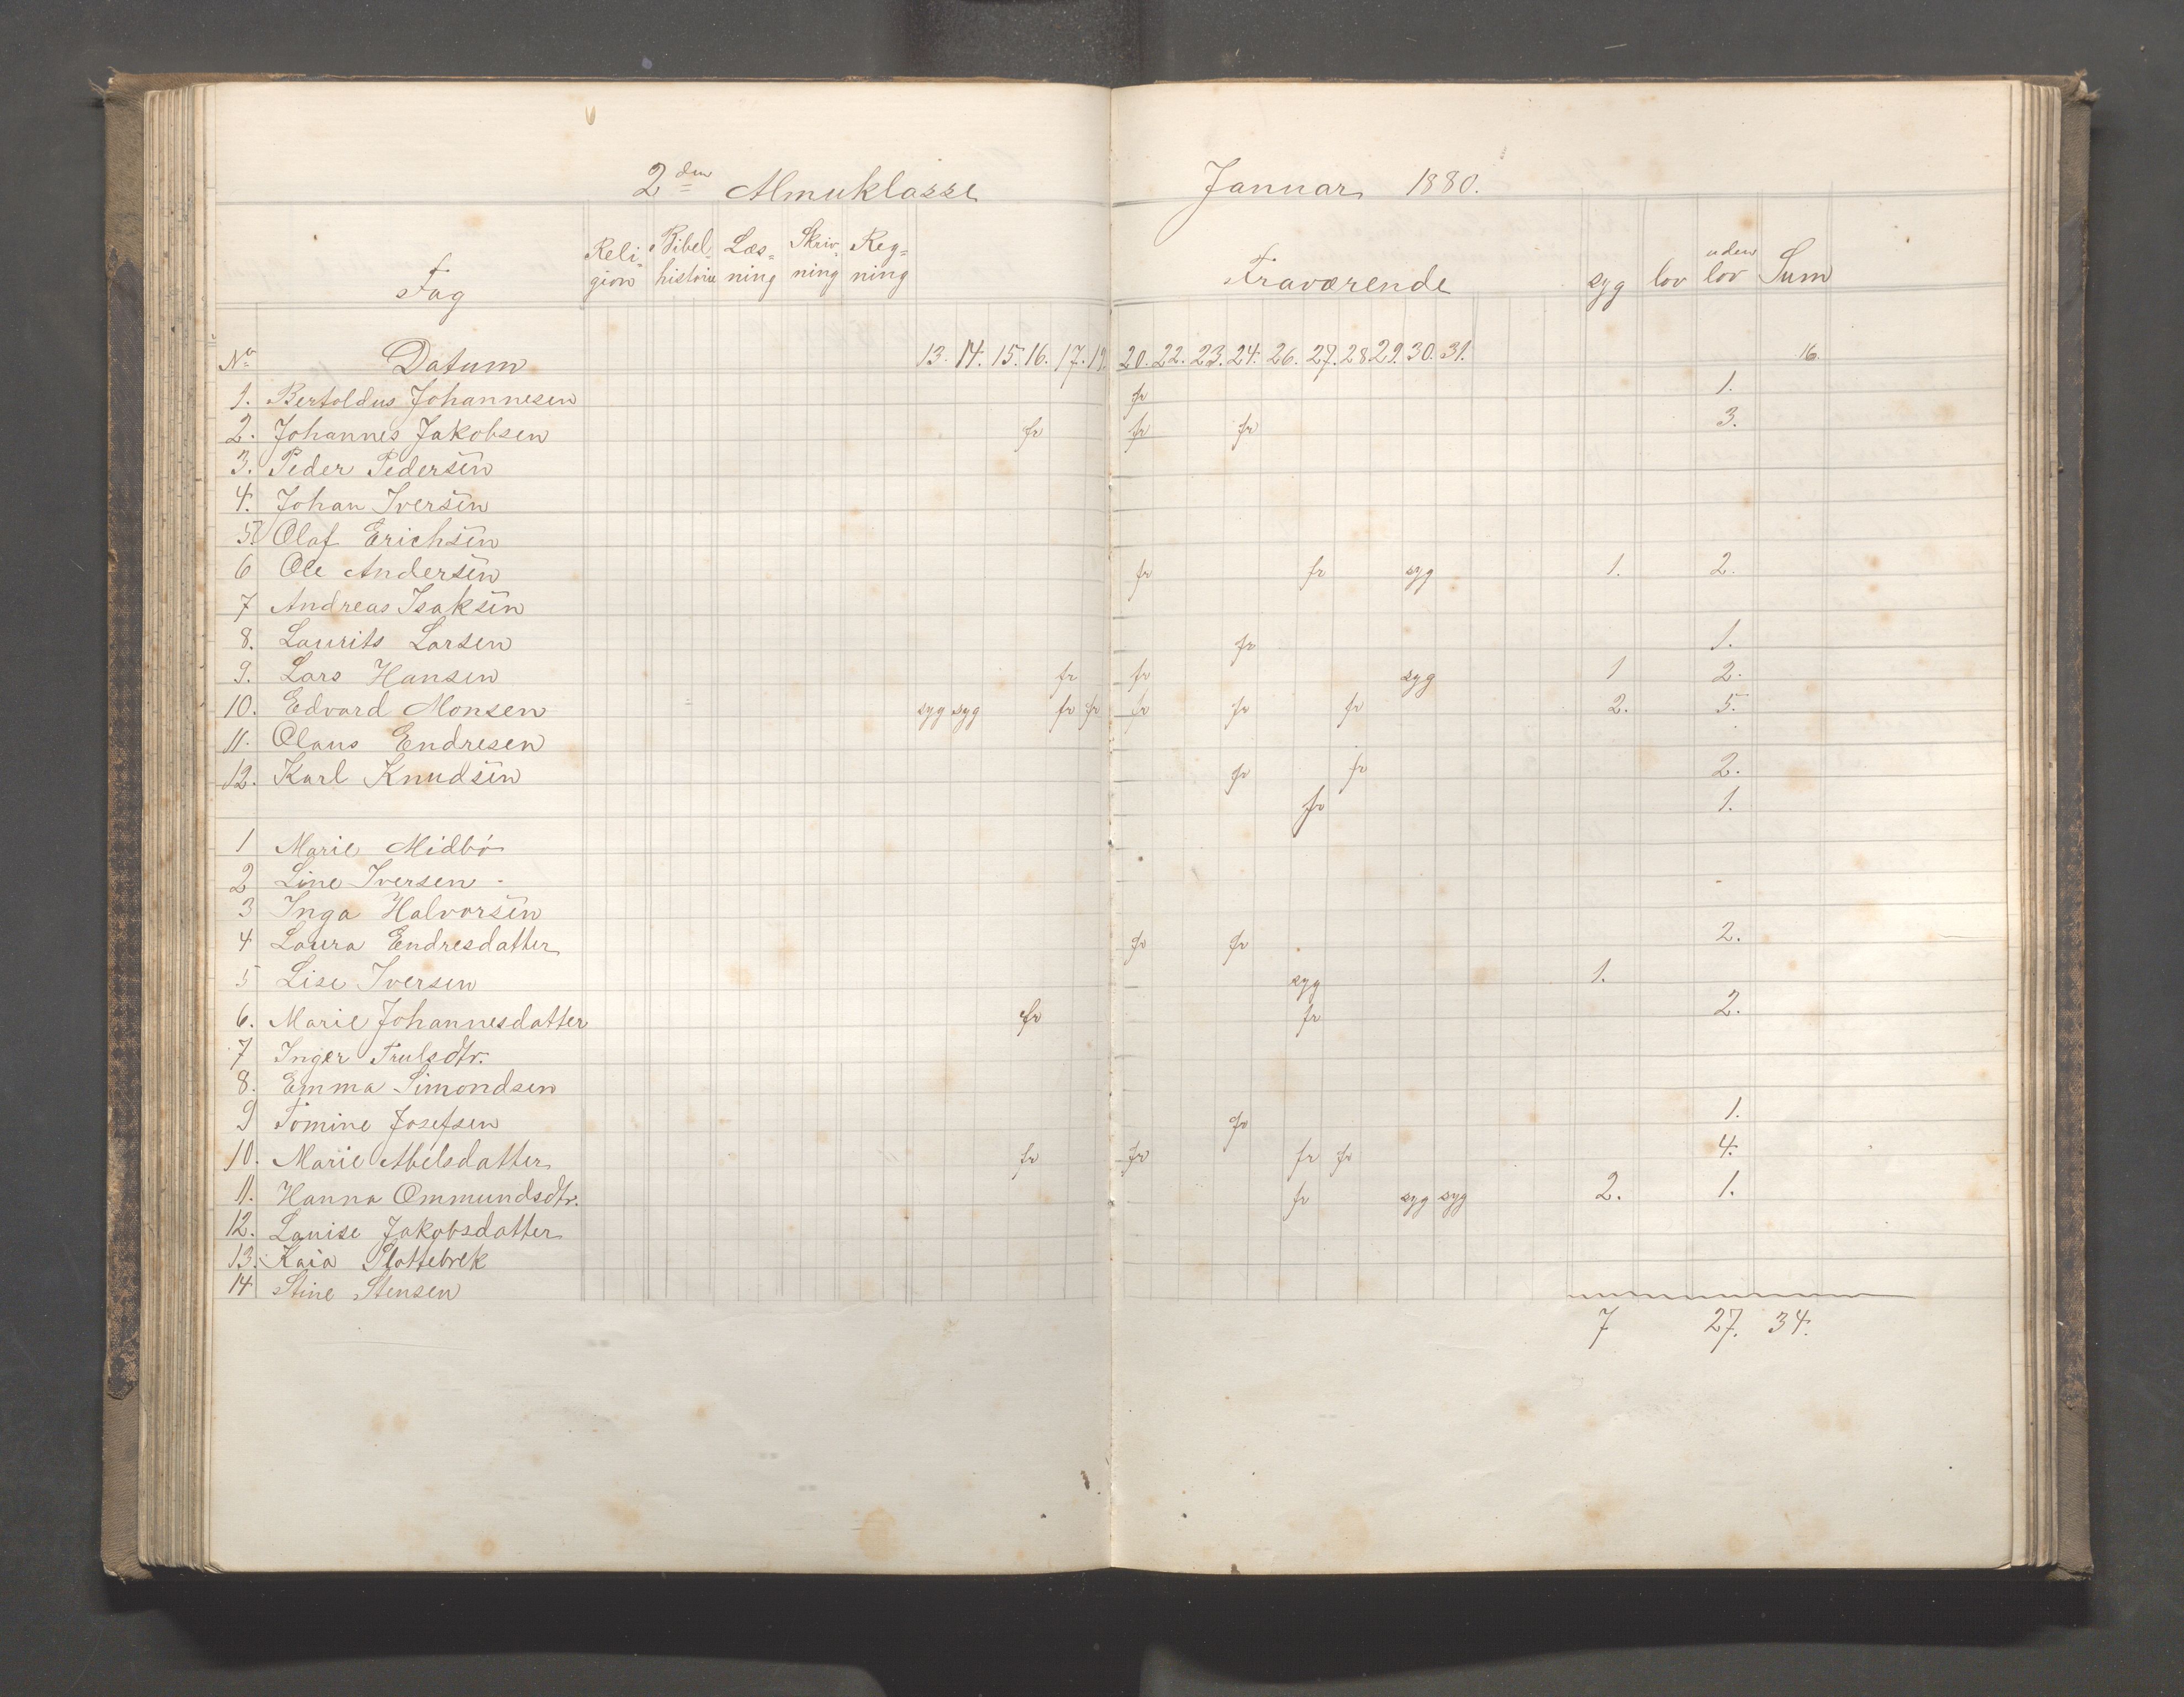 2den Almuklasse Januar 1880.
Fag Reli- gion Bibel- historie Læs- ning Skriv- ning Reg- ning Fraværende syg lov uden lov Sum
No Datum 13. 14. 15. 16. 17. 19. 20. 22. 23. 24. 26. 27. 28. 29. 30. 31. 16.
1. Bertoldus Johannesen fr 1.
2. Johannes Jakobsen fr fr fr 3.
3. Peder Pedersen
4. Johan Iversen
5. Olaf Erichsen
6 Ole Andersen fr fr syg 1. 2.
7 Andreas Isaksen
8. Laurits Larsen fr 1.
9. Lars Hansen fr fr syg 1 2.
10. Edvard Monsen syg syg fr fr fr fr fr 2. 5.
11. Olaus Endresen
12. Karl Knudsen fr fr 2.
fr 1.
1 Marie Midbø
2 Line Iversen
3 Inga Halvorsen
4 Laura Endresdatter fr fr 2.
5 Lise Iversen syg 1.
6. Marie Johannesdatter fr fr 2.
7 Inger Trulsdtr.
8. Emma Simondsen
9 Tomine Josefsen fr 1.
10. Marie Abelsdatter fr fr fr fr 4.
11. Hanna Ommundsdtr. fr syg syg 2. 1.
12. Louise Jakobsdatter
13. Kaia Plottebrek
14 Stine Stensen
7 27. 34.